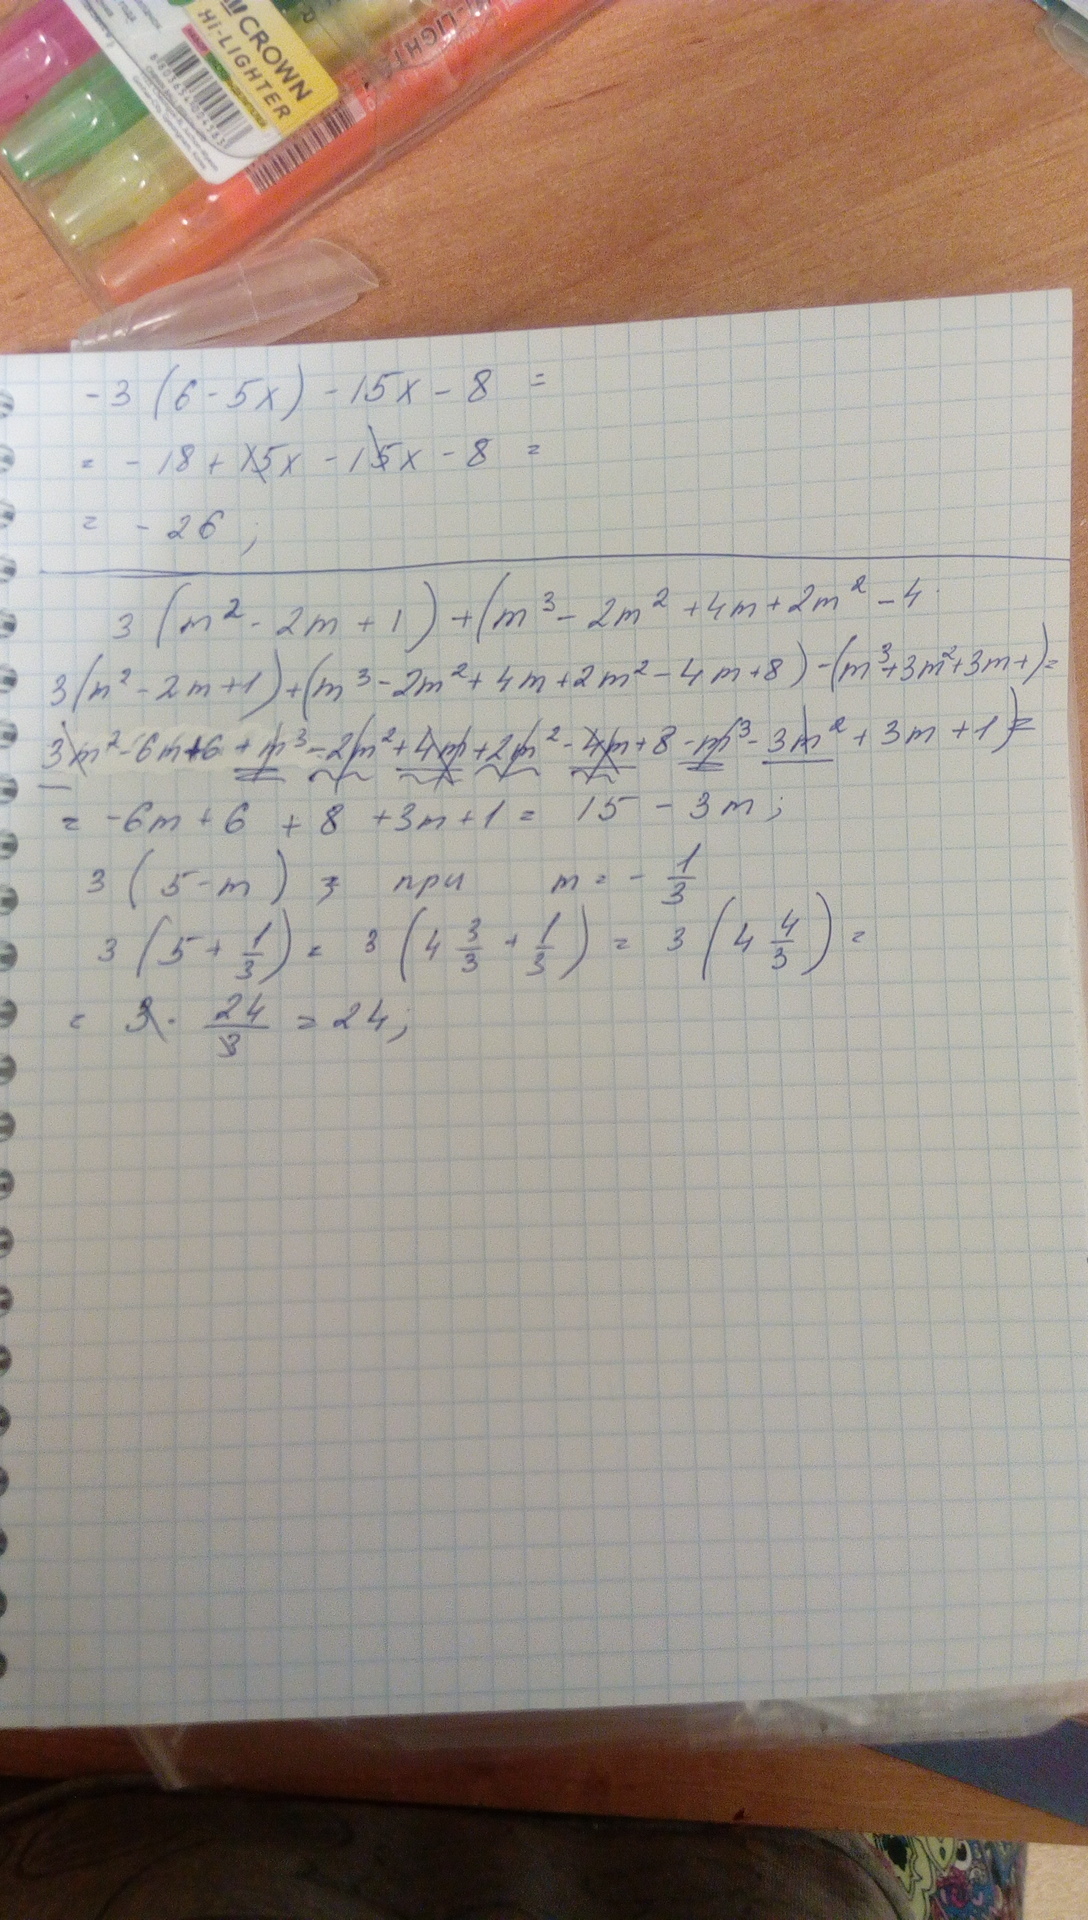 CROWN
HI-LIGHTER
HI-LIGHTER
-3 (6 - 5x) - 15x - 8 =
= - 18 + 15x - 15x - 8 =
= - 26 ;
3 (m² - 2m + 1) + (m³ - 2m² + 4m + 2m² - 4
3(m² - 2m + 1) + (m³ - 2m² + 4m + 2m² - 4m + 8) - (m³ + 3m² + 3m +) =
3m² - 6m + 6 + m³ - 2m² + 4m + 2m² - 4m + 8 - m³ - 3m² + 3m + 1) =
= -6m + 6 + 8 + 3m + 1 = 15 - 3m ;
3 ( 5 - m ) ; при m = - 1/3
3 (5 + 1/3) = 3 (4 3/3 + 1/3) = 3 (4 4/3) =
= 3 · 24/3 = 24 ;